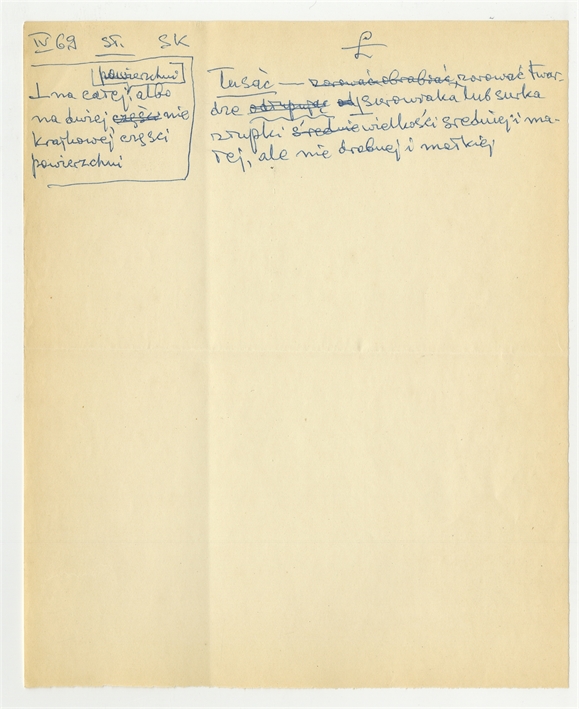 IV 69 st. SK
Ł
powierzchni
⊥ na całej, albo
na dużej części nie
krajkowej części
powierzchni
Łusać — zorować obrabiać, zorować twar-
dze odłupując od surowiaka lub surka
złupki średnie wielkości średniej i ma-
łej, ale nie drobnej i miałkiej